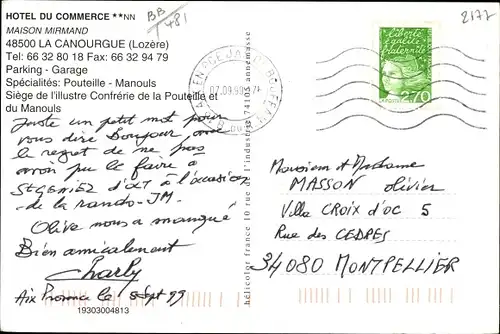 HOTEL DU COMMERCE **NN
MAISON MIRMAND
48500 LA CANOURGUE (Lozère)
Tel: 66 32 80 18 Fax: 66 32 94 79
Parking - Garage
Spécialités: Pouteille - Manouls
Siège de l'illustre Confrérie de la Pouteille et
du Manouls
BB
481
2177
Liberté
égalité
fraternité
LA POSTE
2,70
Juste un petit mot pour
vous dire Bonjour avec
le regret de ne pas
avoir pu le faire à
ST GENIEZ d'OLT à l'occasion
de la rando-JM.
Olive nous a manqué
Bien amicalement
Charly
Aix Provence le Sept 99
19303004813
hélicolor france 10 rue de l'industrie 74105 annemasse
Monsieur et Madame
MASSON Olivier
Villa CROIX d'OC 5
Rue des CEDRES
34080 MONTPELLIER